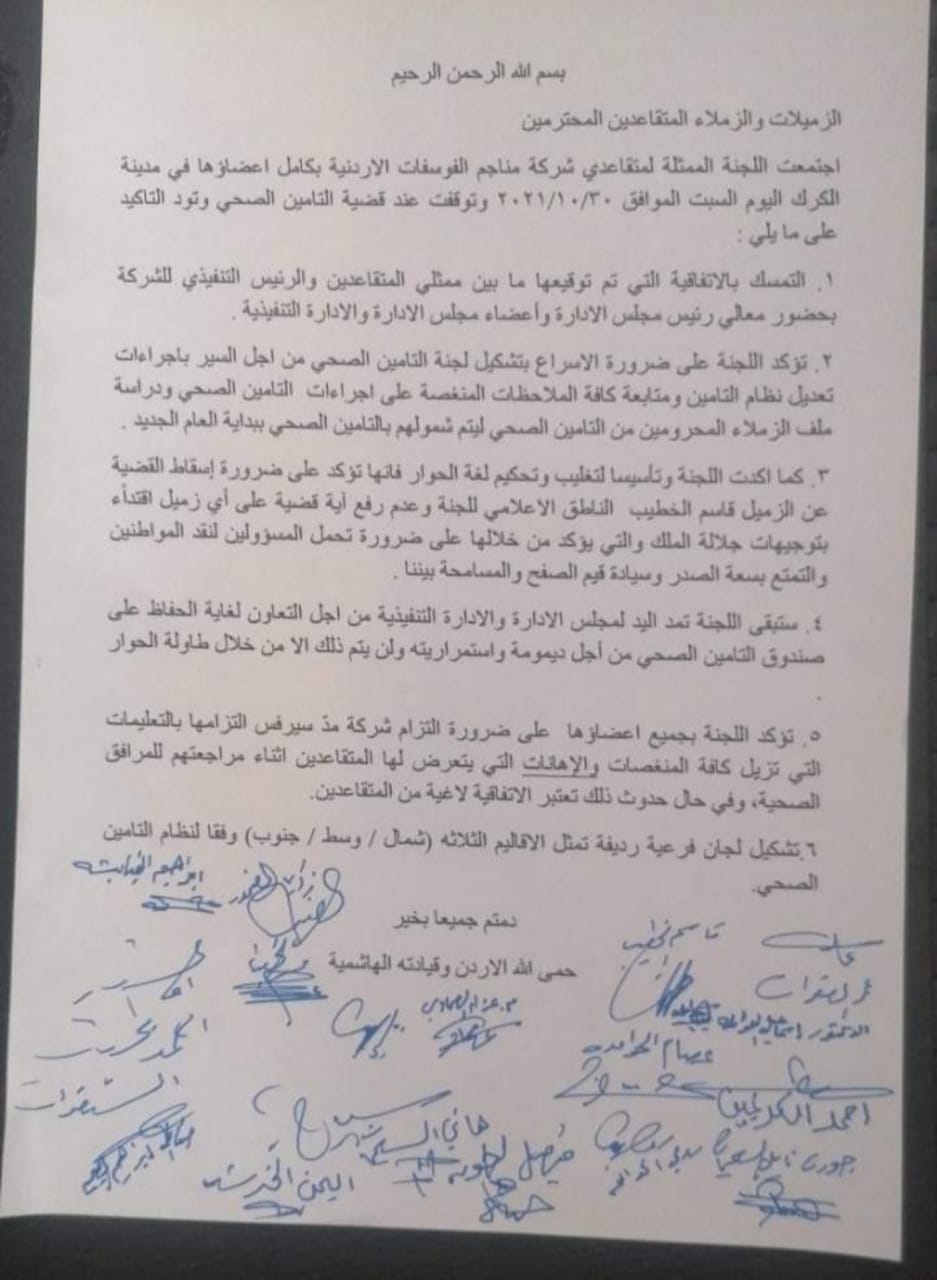 بسم الله الرحمن الرحيم
الزميلات والزملاء المتقاعدين المحترمين
اجتمعت اللجنة الممثلة لمتقاعدي شركة مناجم الفوسفات الاردنية بكامل اعضاؤها في مدينة
الكرك اليوم السبت الموافق ٢٠٢١/١٠/٣٠ وتوقفت عند قضية التامين الصحي وتود التاكيد
على ما يلي :
١. التمسك بالاتفاقية التي تم توقيعها ما بين ممثلي المتقاعدين والرئيس التنفيذي للشركة
بحضور معالي رئيس مجلس الادارة وأعضاء مجلس الادارة والادارة التنفيذية .
٢. تؤكد اللجنة على ضرورة الاسراع بتشكيل لجنة التامين الصحي من اجل السير باجراءات
تعديل نظام التامين ومتابعة كافة الملاحظات المنغصة على اجراءات التامين الصحي ودراسة
ملف الزملاء المحرومين من التامين الصحي ليتم شمولهم بالتامين الصحي ببداية العام الجديد .
٣. كما اكدت اللجنة وتأسيسا لتغليب وتحكيم لغة الحوار فانها تؤكد على ضرورة إسقاط القضية
عن الزميل قاسم الخطيب الناطق الاعلامي للجنة وعدم رفع آية قضية على أي زميل اقتداًء
بتوجيهات جلالة الملك والتي يؤكد من خلالها على ضرورة تحمل المسؤولين لنقد المواطنين
والتمتع بسعة الصدر وسيادة قيم الصفح والمسامحة بيننا .
٤. ستبقى اللجنة تمد اليد لمجلس الادارة والادارة التنفيذية من اجل التعاون لغاية الحفاظ على
صندوق التامين الصحي من أجل ديمومة واستمراريته ولن يتم ذلك الا من خلال طاولة الحوار
.
٥. تؤكد اللجنة بجميع اعضاؤها على ضرورة التزام شركة مدّ سيرفس التزامها بالتعليمات
التي تزيل كافة المنغصات والإهانات التي يتعرض لها المتقاعدين اثناء مراجعتهم للمرافق
الصحية، وفي حال حدوث ذلك تعتبر الاتفاقية لاغية من المتقاعدين.
٦.تشكيل لجان فرعية رديفة تمثل الاقاليم الثلاثه (شمال / وسط / جنوب) وفقا لنظام التامين
الصحي.
دمتم جميعا بخير
حمى الله الاردن وقيادته الهاشمية
قاسم الخطيب
عصام الحوامده